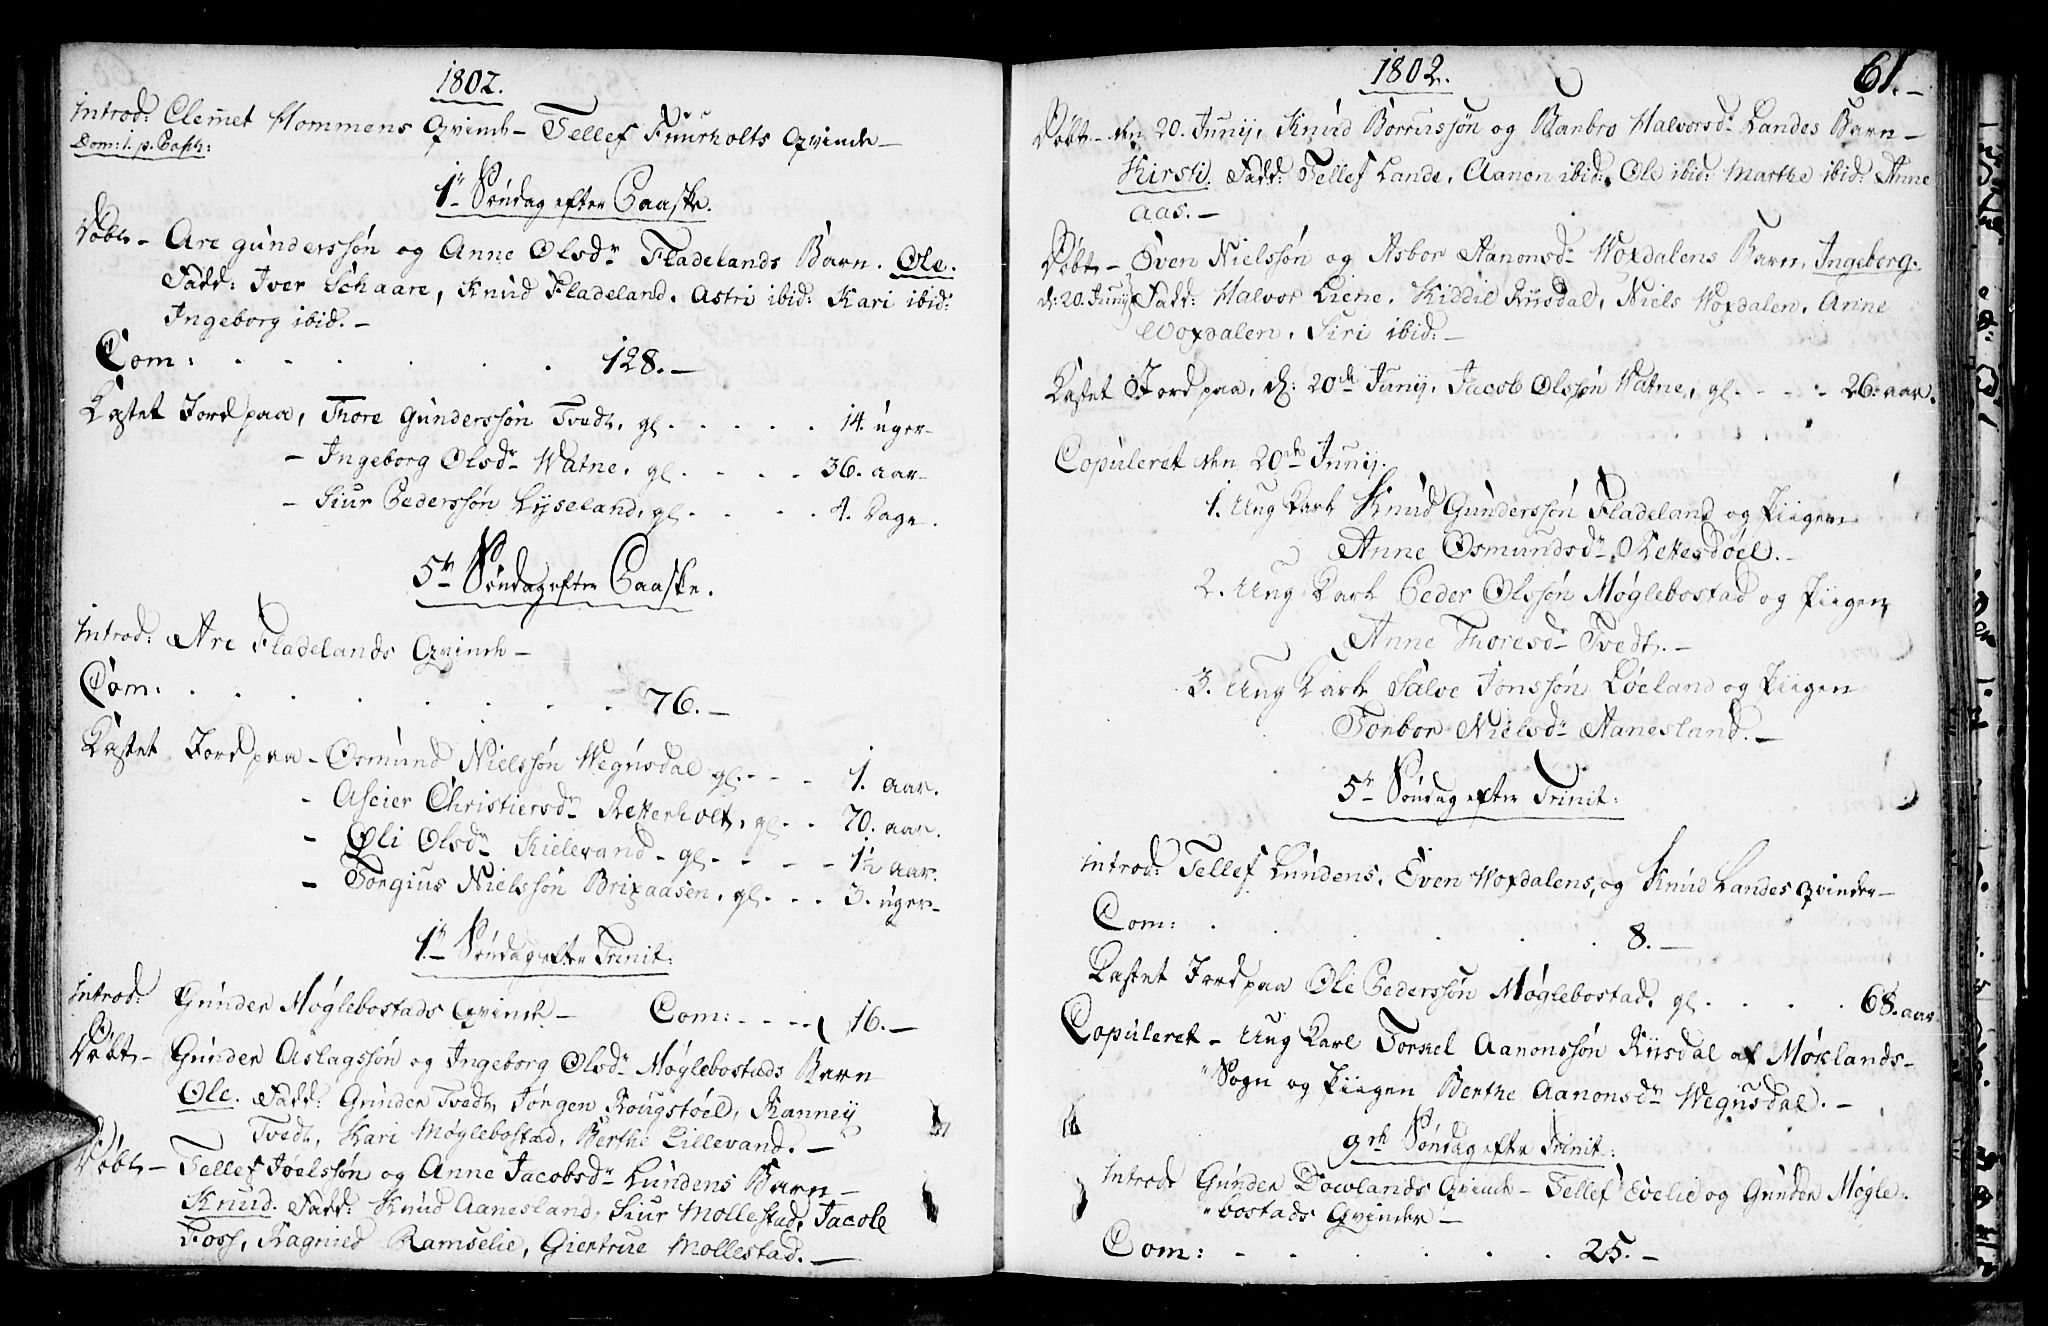 1802.
Introd: Clem̅et Hommens Qvinde – Tellef Fuurholts Qvinde –
Dom: 1. p. Pasch:
1te Søndag efter Paaske.
Døbt – Are Gunderssøn og Anne Olsdr Fladelands Barn. Ole.
Fadd: Iver Schaare, Knud Fladeland, Astri ibid: Kari ibid:
Ingeborg ibid. –
Com: . . . . . . . 128. –
Kastet Jord paa, Thore Gunderssøn Tvedt, gl. . . . . . 14. uger –
– Ingeborg Olsdr Watne, gl. . . . . 36. aar –
– Siur Pederssøn Lyseland, gl. . . . . 4. Dage.
5te Søndag efter Paaske.
Introd: Are Fladelands Qvinde –
Com: . . . . . . . . . 76. –
Kastet Jord paa – Osmund Nielssøn Wegusdal gl. – – – 1. aar.
– Aseier Christiersdr Retterholt, gl. . . 70. aar.
– Øli Olsdr Kielevand – gl. – – – – 1½ aar.
– Torgius Nielssøn Brixaasen, gl. . . . 3. uger –
1te Søndag efter Trinit:
Introd: Gunder Møglebostads Qvinde – Com: – – – 16. –
Døbt – Gunder Aslagssøn og Ingeborg Olsdr Møglebostads Barn
Ole. Fadd: Gunder Tvedt, Jørgen Rougstøel, Ranney
Tvedt, Kari Møglebostad, Berthe Lillevand. –
Døbt – Tellef Joelssøn og Anne Jacobsdr Lundens Barn –
Knud. Fadd: Knud Aanesland, Siur Mollestad, Jacob
Foss, Ragnied Ramselie, Giertrue Mollestad. –
1802. 61. –
Døbt – den 20. Junij, Knud Borrussøn og Barbro Halvorsdr Landes Barn –
Kirsti. Fadd: Tellef Lande, Aanon ibid: Ole ibid: Marthe ibid: Anne
Aas. –
Døbt – Even Nielssøn og Asbor Aanonsdr Woxdalens Barn, Ingeborg.
d: 20. Junij Fadd: Halvor Liene, Kiddil Riisdal, Niels Woxdalen, Anne
Woxdalen, Siri ibid: –
Kastet Jord paa, d: 20de Junij, Jacob Olssøn Watne, gl. – – – – 26. aar.
Copuleret den 20de Junij.
1. Ung Karl Knud Gunderssøn Fladeland og Piigen
Anne Osmundsdr Kettesdøel. –
2. Ung Karl Peder Olssøn Møglebostad og Piigen
Anne Thoresdr Tvedt. –
3. Ung Karl Salve Jonssøn Løeland og Piigen
Torbor Nielsdr Aanesland. –
5te Søndag efter Trinit:
Introd: Tellef Lundens, Even Woxdalens, og Knud Landes Qvinder –
Com: . . . . . . 8. –
Kastet Jord paa Ole Pederssøn Møglebostad, gl. . . . . 68. aar –
Copuleret – Ung Karl Torkel Aanonssøn Riisdal af Møklands-
Sogn og Piigen Berthe Aanonsdr Wegusdal. –
9de Søndag efter Trinit:
Introd: Gunder Dowlands Qvinde – Tellef Evelie og Gunder Møgle-
bostads Qvinder –
Com: – . . . . . . 25. –